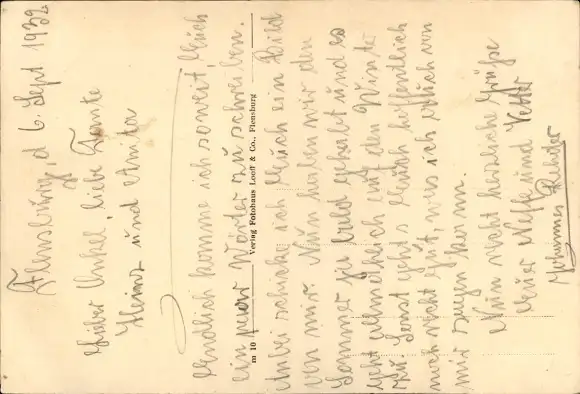 Flensburg, d 6. Sept 1932
Lieber Onkel, liebe Tante
Heinz und Anita
Endlich komme ich soweit Euch
ein paar Wörter zu schreiben.
Anbei schicke ich Euch ein Bild
von mir. Nun haben wir den
Sommer ja bald gehabt und es
geht allmählich auf den Winter
zu. Sonst geht's Euch hoffentlich
noch recht gut, was ich auch von
mir sagen kann.
Nun recht herzliche Grüße
Euer Neffe und Vetter
Johannes
m 10 Verlag Fotohaus Loeff & Co., Flensburg